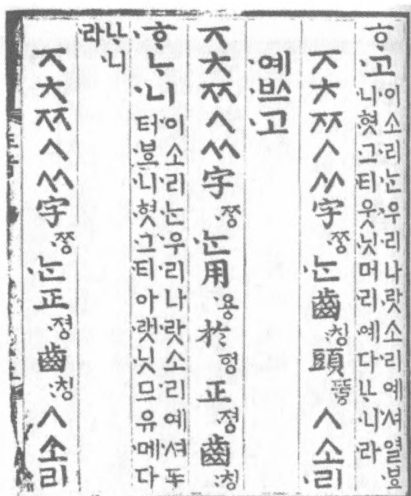 ᄒᆞ·고이소·리ᄂᆞᆫ우·리나·랏소·리예·셔열·ᄫᅳ니·혓·그·티웃·닛머·리·예다·ᄂᆞ·니·라
ᅎᅔᅏᄼᄽ字ᄍᆞᆼ·ᄂᆞᆫ齒:칭頭뚜ᇢㅅ소·리
·예·ᄡᅳ·고
ᅐᅕᅑᄾᄿ字ᄍᆞᆼ·ᄂᆞᆫ用·용於ᅙᅥᆼ正·졍齒:칭
·ᄒᆞ·ᄂᆞ니·이소·리ᄂᆞᆫ우·리나·랏소·리예·셔두터·ᄫᅳ니·혓·그·티아·랫·닛므유·메다
·ᄂᆞ·니·라
ᅐᅕᅑᄾᄿ字ᄍᆞᆼ·ᄂᆞᆫ正·졍齒:칭ㅅ소·리